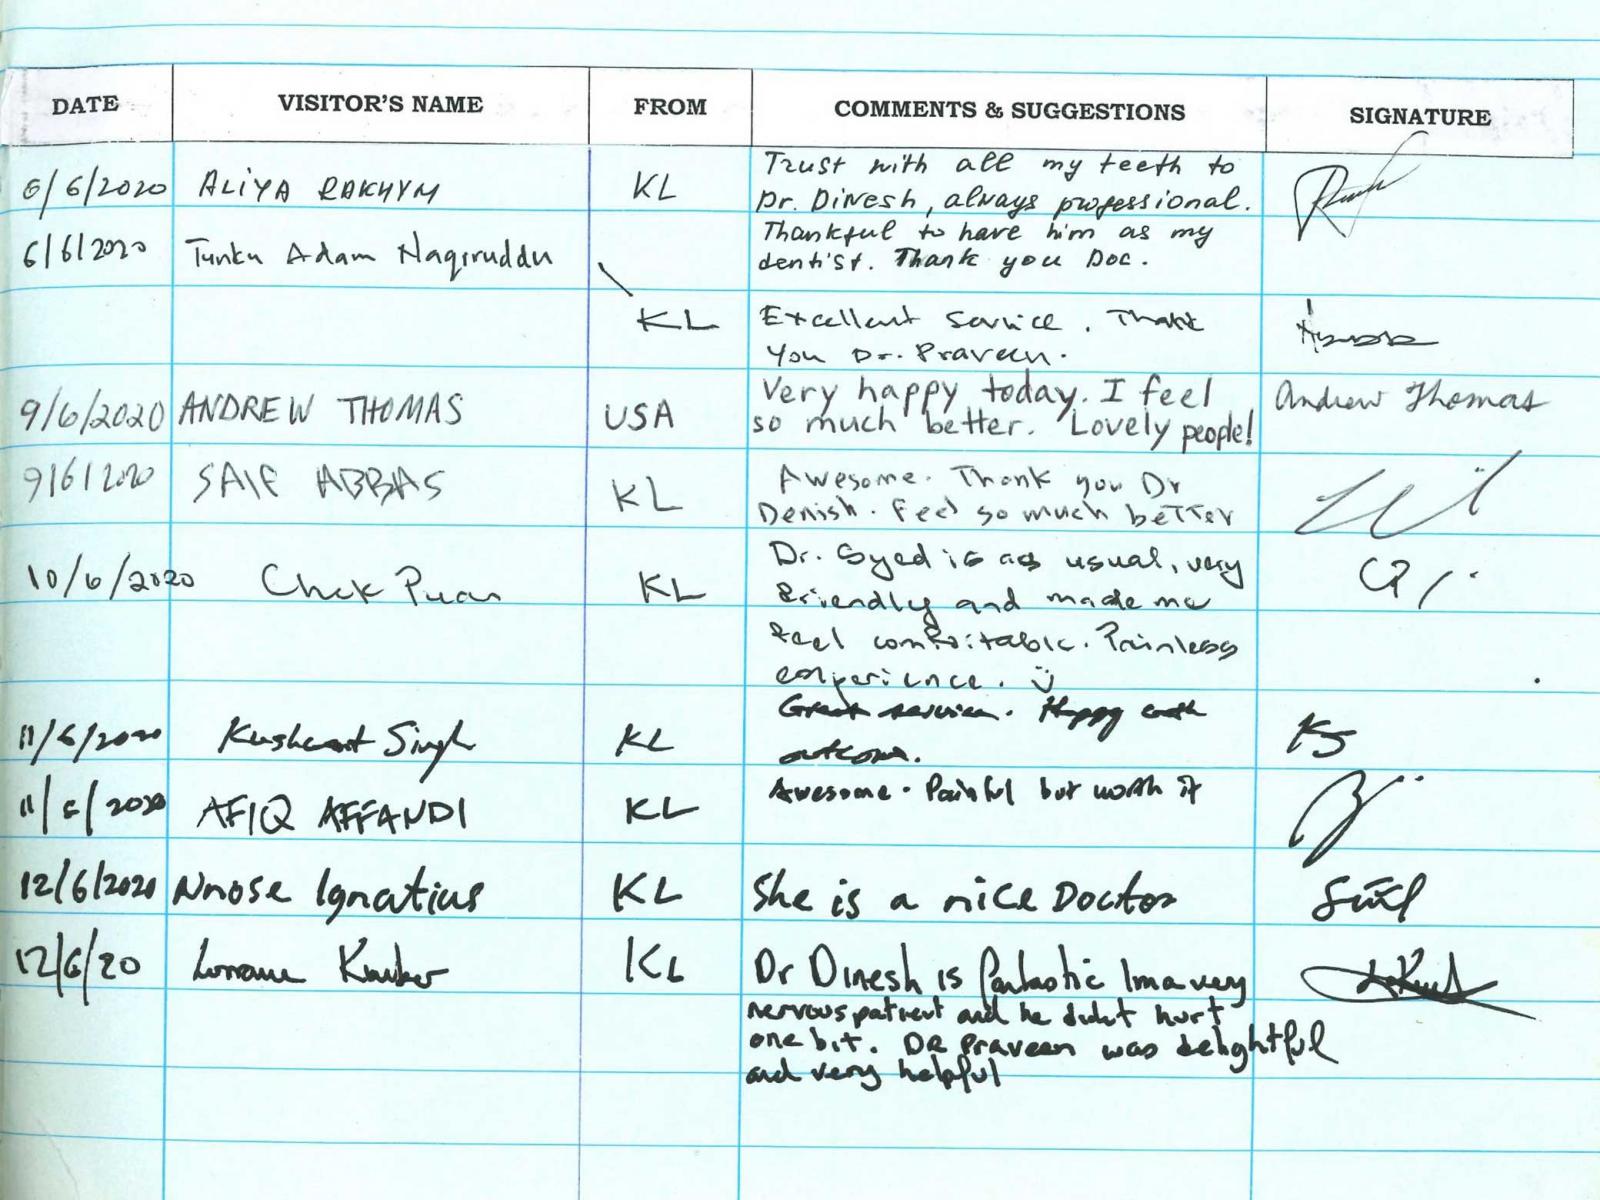 DATE VISITOR'S NAME FROM COMMENTS & SUGGESTIONS SIGNATURE
6/6/2020 ALIYA RAKHYM KL Trust with all my teeth to
Dr. Dinesh, always professional.
Thankful to have him as my
dentist. Thank you Doc.
6/6/2020 Tunku Adam Naqiruddu
KL Excellent service. Thank
you Dr. Praveen.
9/6/2020 ANDREW THOMAS USA Very happy today. I feel
so much better. Lovely people! Andrew Thomas
9/6/2020 SAIF ABBAS KL Awesome. Thank you Dr
Denish. Feel so much better
10/6/2020 Chek Puan KL Dr. Syed is as usual, very
friendly and made me
feel comfortable. Painless
experience. CP
11/6/2020 Kushwant Singh KL Great service. Happy with
outcome. KS
11/6/2020 AFIQ AFFANDI KL Awesome. Painful but worth it
12/6/2020 Nnose Ignatius KL She is a nice Doctor
12/6/20 Lorraine KL Dr Dinesh is fantastic Im a very
nervous patient and he didnt hurt
one bit. DR Praveen was delightful
and very helpful